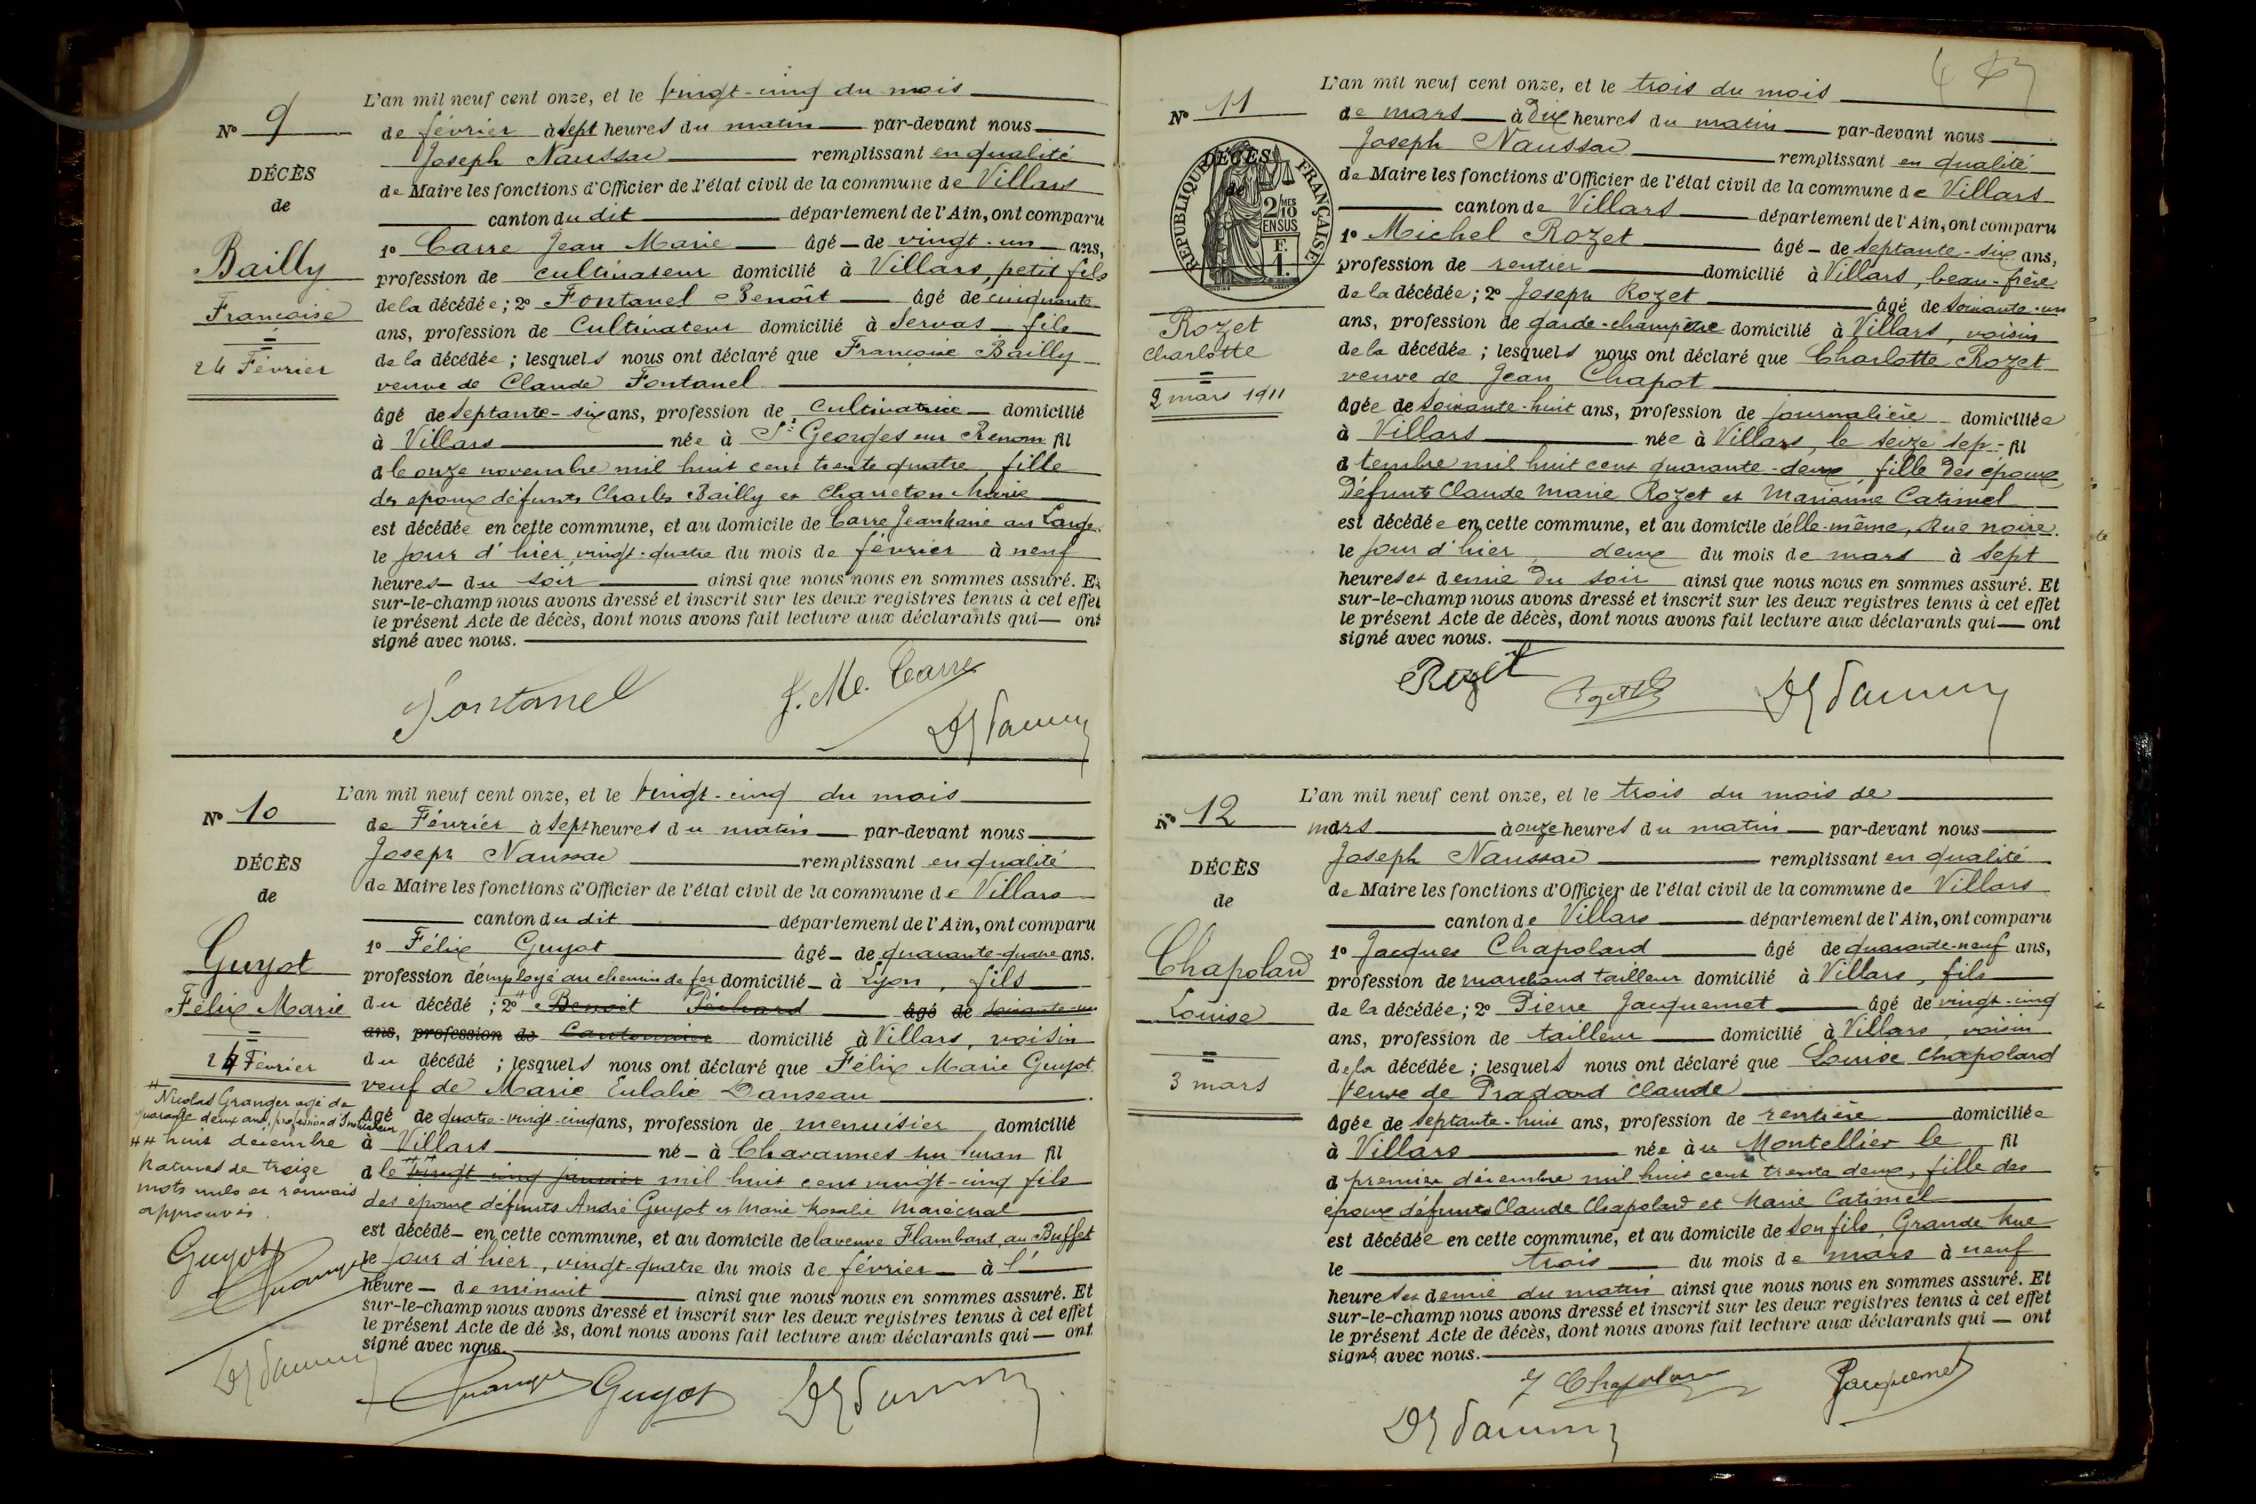 Nº 9
DÉCÈS
de
Bailly
Françoise
24 Février
L'an mil neuf cent onze, et le vingt-cinq du mois
de février à sept heures du matin par-devant nous
Joseph Naussac remplissant en qualité
de Maire les fonctions d'Officier de l'état civil de la commune de Villars
canton du dit département de l'Ain, ont comparu
1º Carre Jean Marie âgé de vingt-un ans,
profession de cultivateur domicilié à Villars, petit fils
de la décédée ; 2º Fontanel Benoît âgé de cinquante
ans, profession de Cultivateur domicilié à Servas fils
de la décédée ; lesquels nous ont déclaré que Françoise Bailly
veuve de Claude Fontanel
âgé de septante-six ans, profession de Cultivatrice domicilié
à Villars née à St Georges sur Renom fil
d le onze novembre mil huit cent trente quatre, fille
des époux défunts Charles Bailly et Charreton Marie
est décédée en cette commune, et au domicile de Carre Jean Marie au Large
le jour d'hier vingt-quatre du mois de février à neuf
heures du soir ainsi que nous nous en sommes assuré. Et
sur-le-champ nous avons dressé et inscrit sur les deux registres tenus à cet effet
le présent Acte de décès, dont nous avons fait lecture aux déclarants qui ont
signé avec nous.
Fontanel J. M. Carre
Nº 10
DÉCÈS
de
Guyot
Félix Marie
24 Février
L'an mil neuf cent onze, et le vingt-cinq du mois
de Février à sept heures du matin par-devant nous
Joseph Naussac remplissant en qualité
de Maire les fonctions d'Officier de l'état civil de la commune de Villars
canton du dit département de l'Ain, ont comparu
1º Félix Guyot âgé de quarante-quatre ans.
profession d'employé au chemin de fer domicilié à Lyon, fils
du décédé ; 2º # Benoit Péchard âgé de soixante-un
ans, profession de Cantonnier domicilié à Villars, voisin
du décédé ; lesquels nous ont déclaré que Félix Marie Guyot
veuf de Marie Eulalie Danseau
âgé de quatre-vingt-cinq ans, profession de menuisier domicilié
à Villars né à Chavannes sur Suran fil
d le ## vingt cinq janvier mil huit cent vingt-cinq fils
des époux défunts André Guyot et Marie Rosalie Maréchal
est décédé en cette commune, et au domicile de la veuve Flambant, au Buffet
le jour d'hier, vingt-quatre du mois de février à l'
heure de minuit ainsi que nous nous en sommes assuré. Et
sur-le-champ nous avons dressé et inscrit sur les deux registres tenus à cet effet
le présent Acte de décès, dont nous avons fait lecture aux déclarants qui ont
signé avec nous.
# Nicolas Granger agé de
quarante deux ans, profession d'Instituteur
## huit décembre
Ratures de treize
mots nuls et renvois
approuvés.
Guyot
Granger
Granger Guyot
Nº 11
DÉCÈS
RÉPUBLIQUE FRANÇAISE
2/10 MES
EN SUS
F.
1.
Rozet
Charlotte
2 mars 1911
L'an mil neuf cent onze, et le trois du mois
de mars à dix heures du matin par-devant nous
Joseph Naussac remplissant en qualité
de Maire les fonctions d'Officier de l'état civil de la commune de Villars
canton de Villars département de l'Ain, ont comparu
1º Michel Rozet âgé de septante-six ans,
profession de rentier domicilié à Villars, beau-frère
de la décédée ; 2º Joseph Rozet âgé de soixante-un
ans, profession de garde-champêtre domicilié à Villars, voisin
de la décédée ; lesquels nous ont déclaré que Charlotte Rozet
veuve de Jean Chapot
âgée de soixante-huit ans, profession de journalière domiciliée
à Villars née à Villars, le seize sep- fil
d tembre mil huit cent quarante-deux, fille des époux
défunts Claude Marie Rozet et Marianne Catimel
est décédée en cette commune, et au domicile d'elle-même, Rue noire.
le jour d'hier deux du mois de mars à sept
heures et demie du soir ainsi que nous nous en sommes assuré. Et
sur-le-champ nous avons dressé et inscrit sur les deux registres tenus à cet effet
le présent Acte de décès, dont nous avons fait lecture aux déclarants qui ont
signé avec nous.
Rozet
Nº 12
DÉCÈS
de
Chapolard
Louise
3 mars
L'an mil neuf cent onze, et le trois du mois de
mars à onze heures du matin par-devant nous
Joseph Naussac remplissant en qualité
de Maire les fonctions d'Officier de l'état civil de la commune de Villars
canton de Villars département de l'Ain, ont comparu
1º Jacques Chapolard âgé de quarante-neuf ans,
profession de marchand tailleur domicilié à Villars, fils
de la décédée ; 2º Pierre Jacquemet âgé de vingt-cinq
ans, profession de tailleur domicilié à Villars, voisin
de la décédée ; lesquels nous ont déclaré que Louise Chapolard
Veuve de Pradard Claude
âgée de septante-huit ans, profession de rentière domiciliée
à Villars née à u Montellier le fil
d premier décembre mil huit cent trente deux, fille des
époux défunts Claude Chapolard et Marie Catimel
est décédée en cette commune, et au domicile de son fils, Grande Rue
le trois du mois de mars à neuf
heures et demie du matin ainsi que nous nous en sommes assuré. Et
sur-le-champ nous avons dressé et inscrit sur les deux registres tenus à cet effet
le présent Acte de décès, dont nous avons fait lecture aux déclarants qui ont
signé avec nous.
J Chapolard Jacquemet